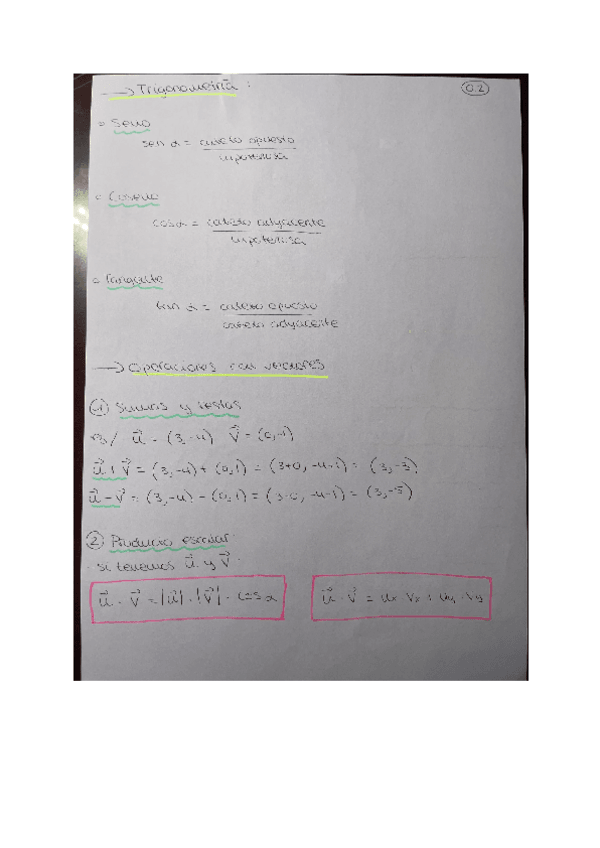 → Trigonometría :
0.2
▫ Seno
sen α = cateto opuesto / hipotenusa
▫ Coseno
cos α = cateto adyacente / hipotenusa
▫ Tangente
tan α = cateto opuesto / cateto adyacente
→ Operaciones con vectores
① Sumas y restas
u⃗ = (3,-4) v⃗ = (0,-1)
u⃗ + v⃗ = (3,-4) + (0,1) = (3+0, -4+1) = (3,-3)
u⃗ - v⃗ = (3,-4) - (0,1) = (3-0, -4-1) = (3,-5)
② Producto escalar
· si tenemos u⃗ y v⃗ ·
u⃗ · v⃗ = |u⃗| · |v⃗| · cos α
u⃗ · v⃗ = ux · vx + uy · vy